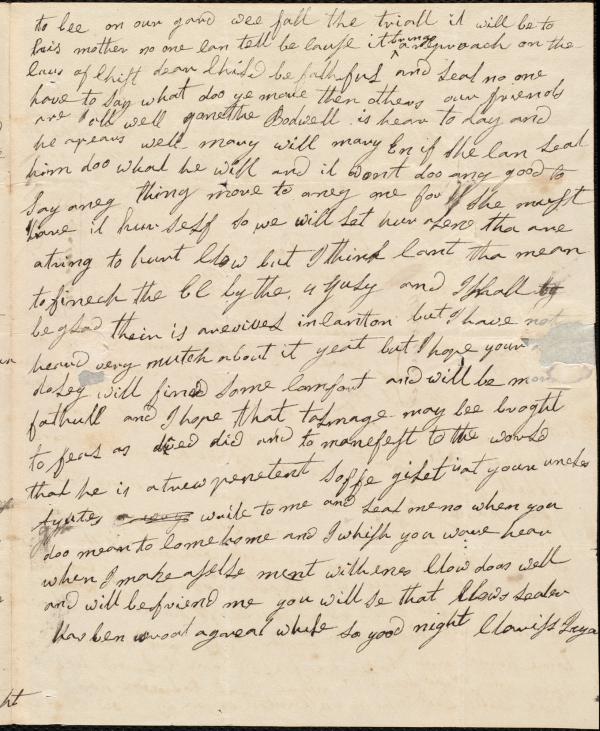 to bee on our gard wee fall the triall it will be to
his mother no one can tell be cause it brings a reproach on the
caus of Christ dear Child be fathful and leat no one
have to say what doo ye more then others our friends
are all well Bodwell is hear to day and
he apears well mary will mary En if she can leat
him doo what he will and it wont doo any good to
say aney thing more to aney one for she must
have it hur self so we will let hur alone tha are
atring to hurt Clow but I think cant tha mean
to finech the by the 4 July and I shall
be glad their is arevivel in canton but I have not
heard very mutch about it yeat but I hope your
will find some comfort and will be more
fathull and I hope that talmage may bee broght
to feal as did and to manefest to the world
that he is a trew penetent is at your uncles
write to me and leat me no when you
doo mean to come home and I whish you ware hear
when I make aselse ment with enes Clow doos well
and will befriend me you will se that Clows leater
has ben wroat agreat while so good night Clarriss
ht